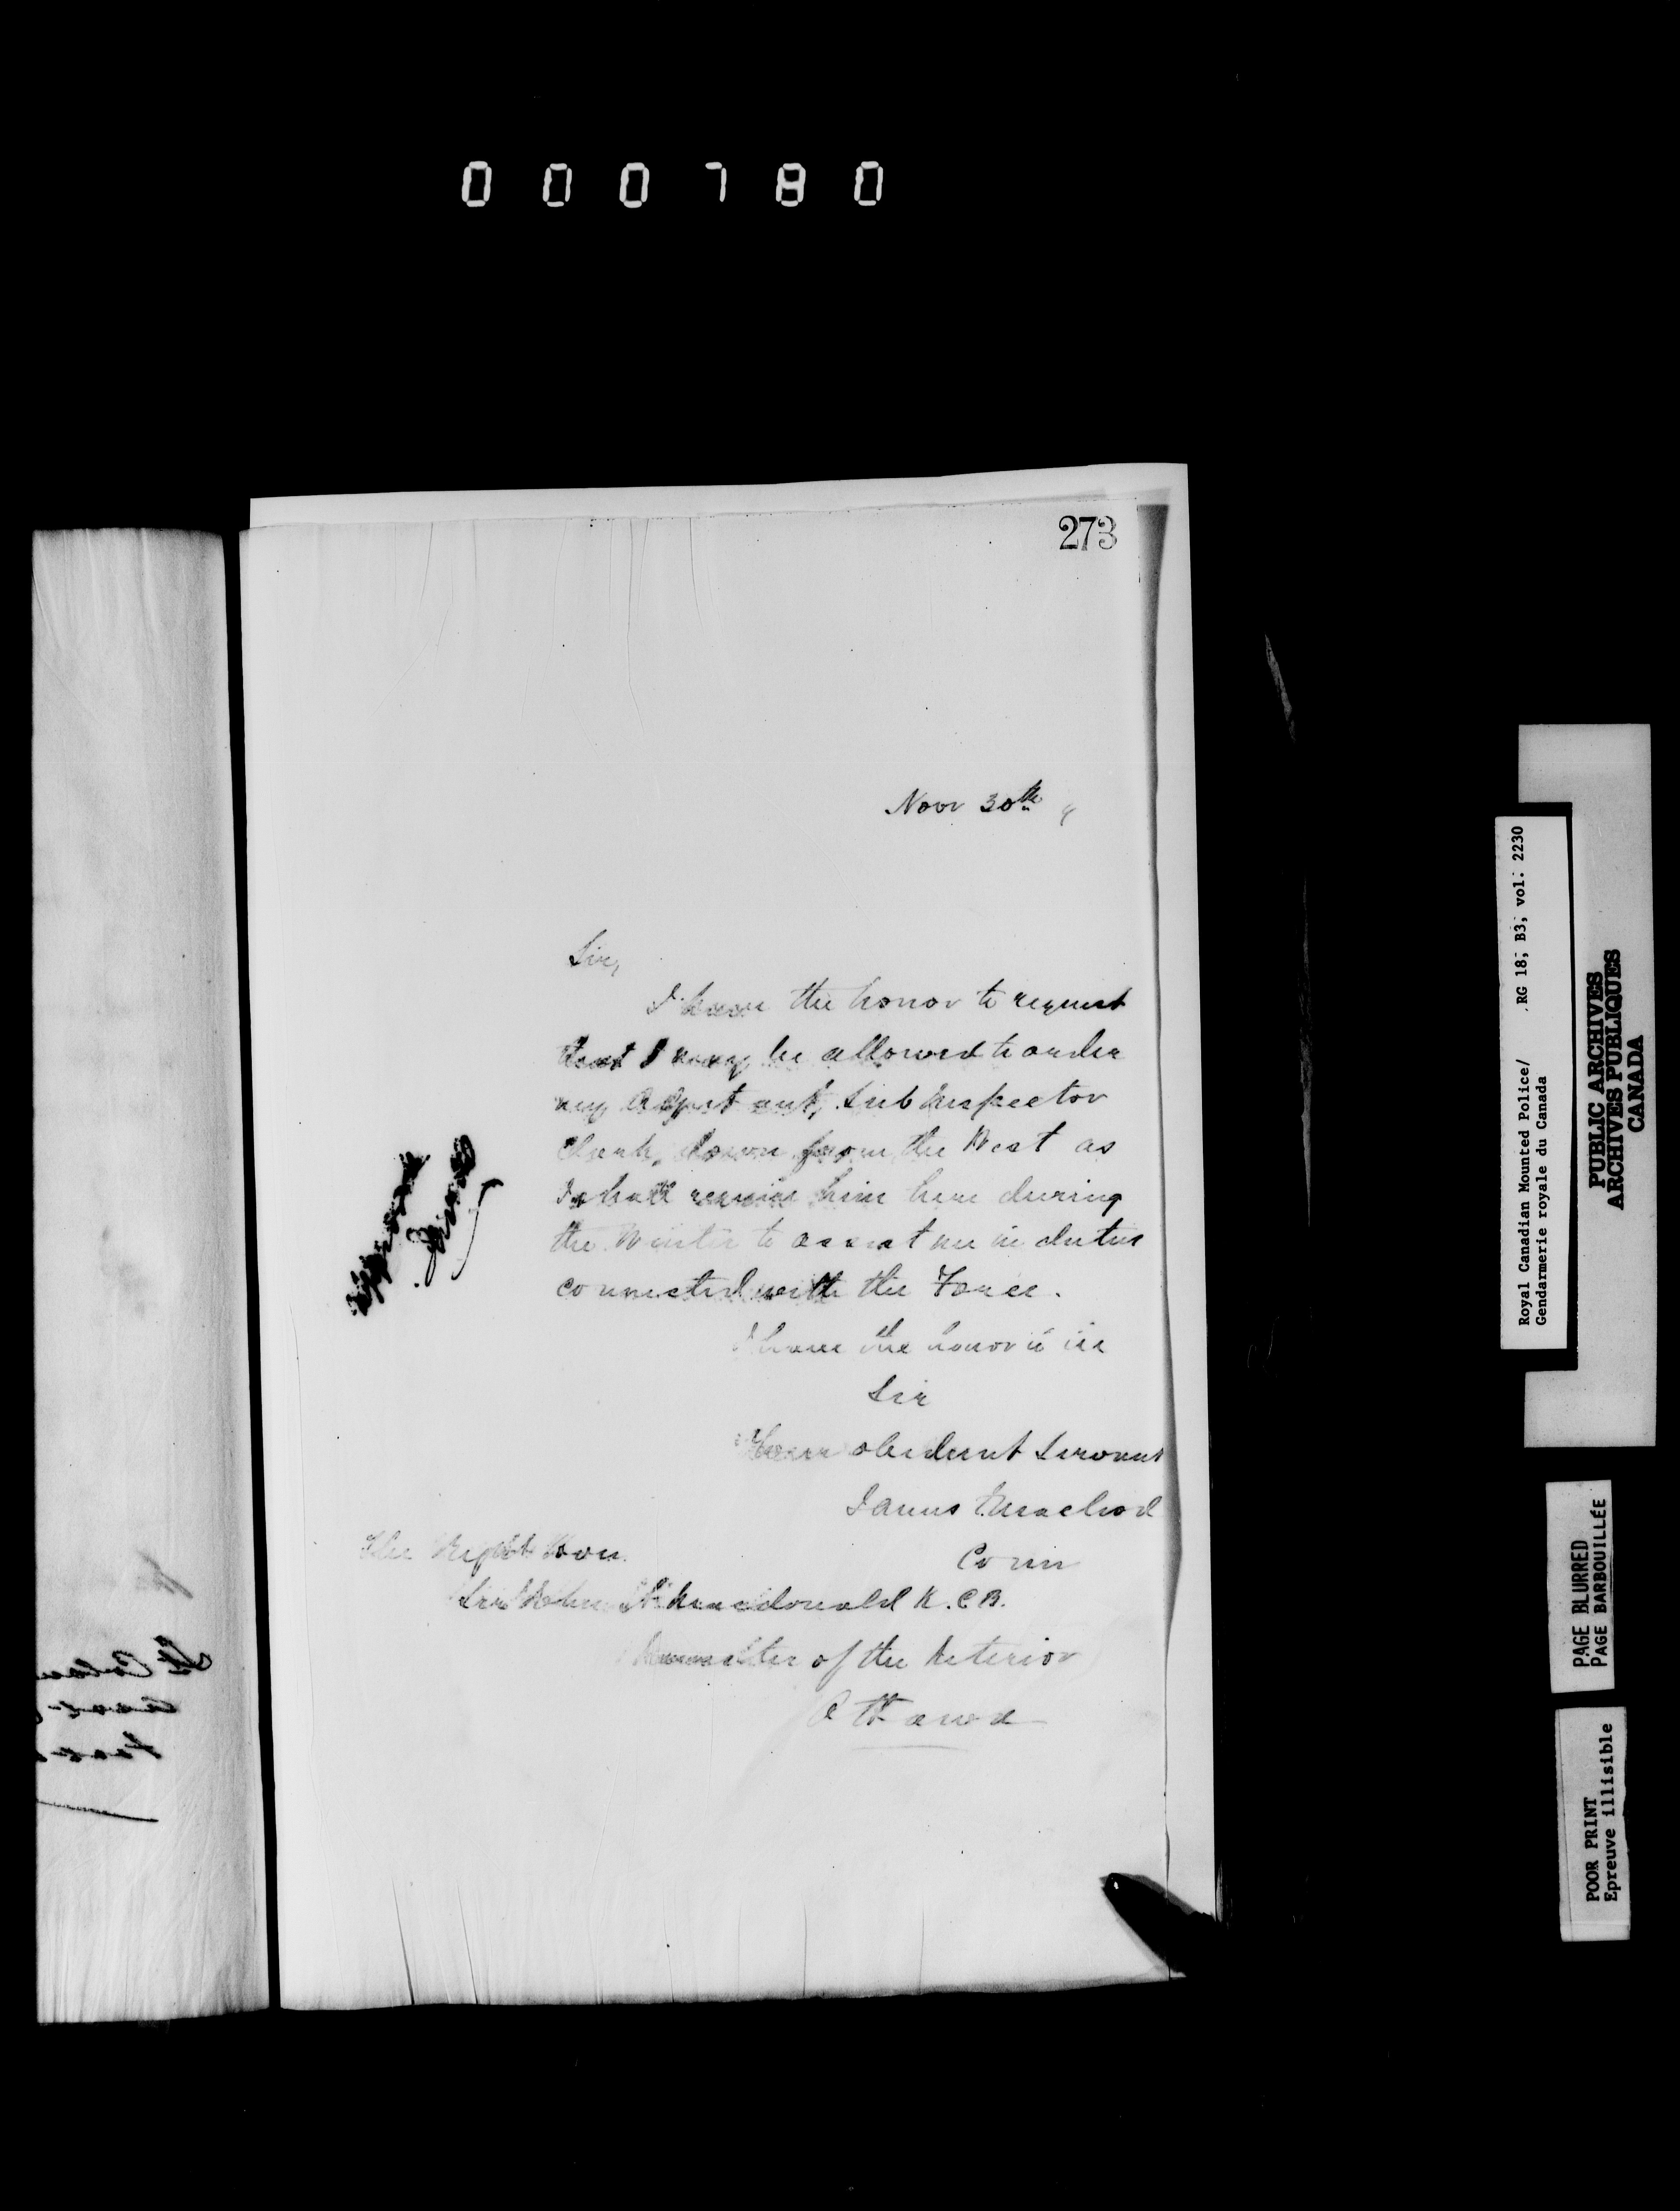 000780
273
Novr 30th
Sir,
I have the honor to request
that I may be allowed to order
my Adjutant, Sub Inspector
Clark, down from the West as
I shall require him here during
the Winter to assist me in duties
connected with the Force.
I have the honor to be
Sir
Your obedient Servant
James F. Macleod
Comr
The Right Hon.
Sir John A. Macdonald K.C.B.
Minister of the Interior
Ottawa
Approved
Royal Canadian Mounted Police/ RG 18; B3; vol: 2230
Gendarmerie royale du Canada
PUBLIC ARCHIVES
ARCHIVES PUBLIQUES
CANADA
PAGE BLURRED
PAGE BARBOUILLÉE
POOR PRINT
Epreuve illisible